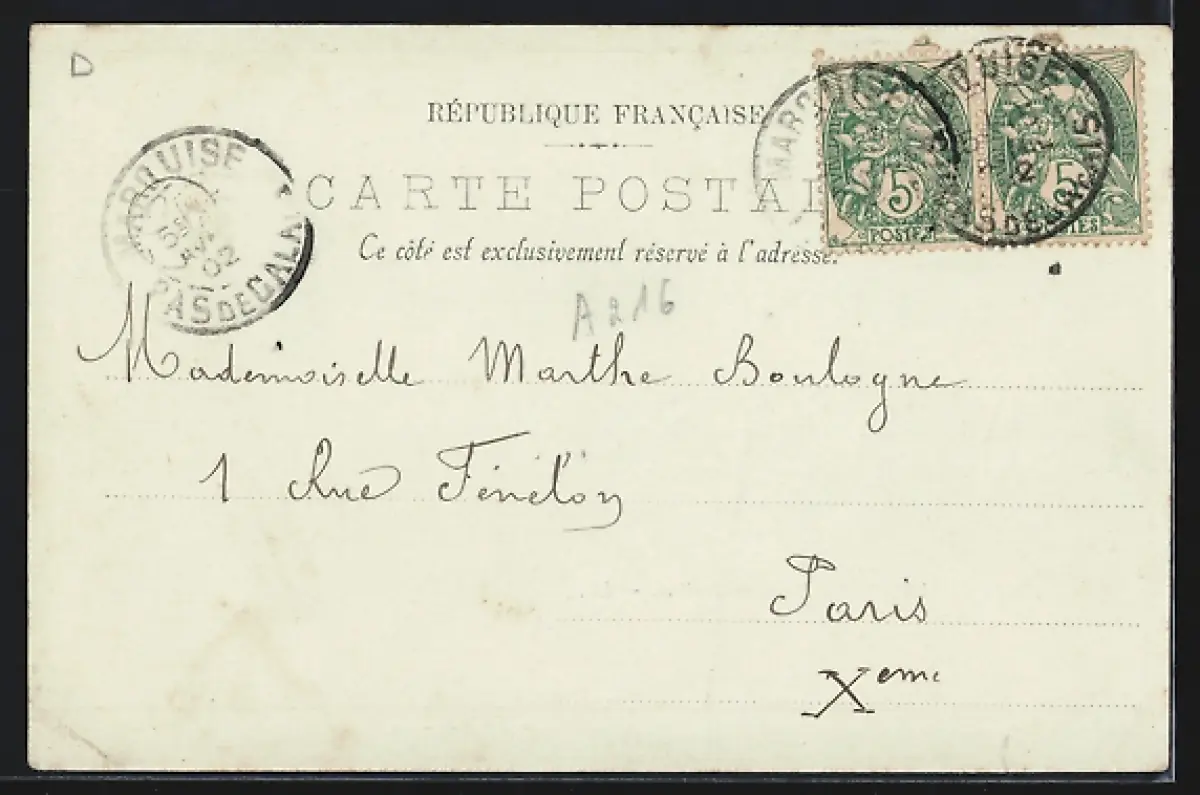 D
RÉPUBLIQUE FRANÇAISE
CARTE POSTAL
Ce côté est exclusivement réservé à l'adresse.
MARQUISE
02
PAS DE CALAI
MARQUISE
5
POSTES
5
PAS DE CALAIS
A 216
Mademoiselle Marthe Boulogne
1 Rue Fénélon
Paris
Xeme